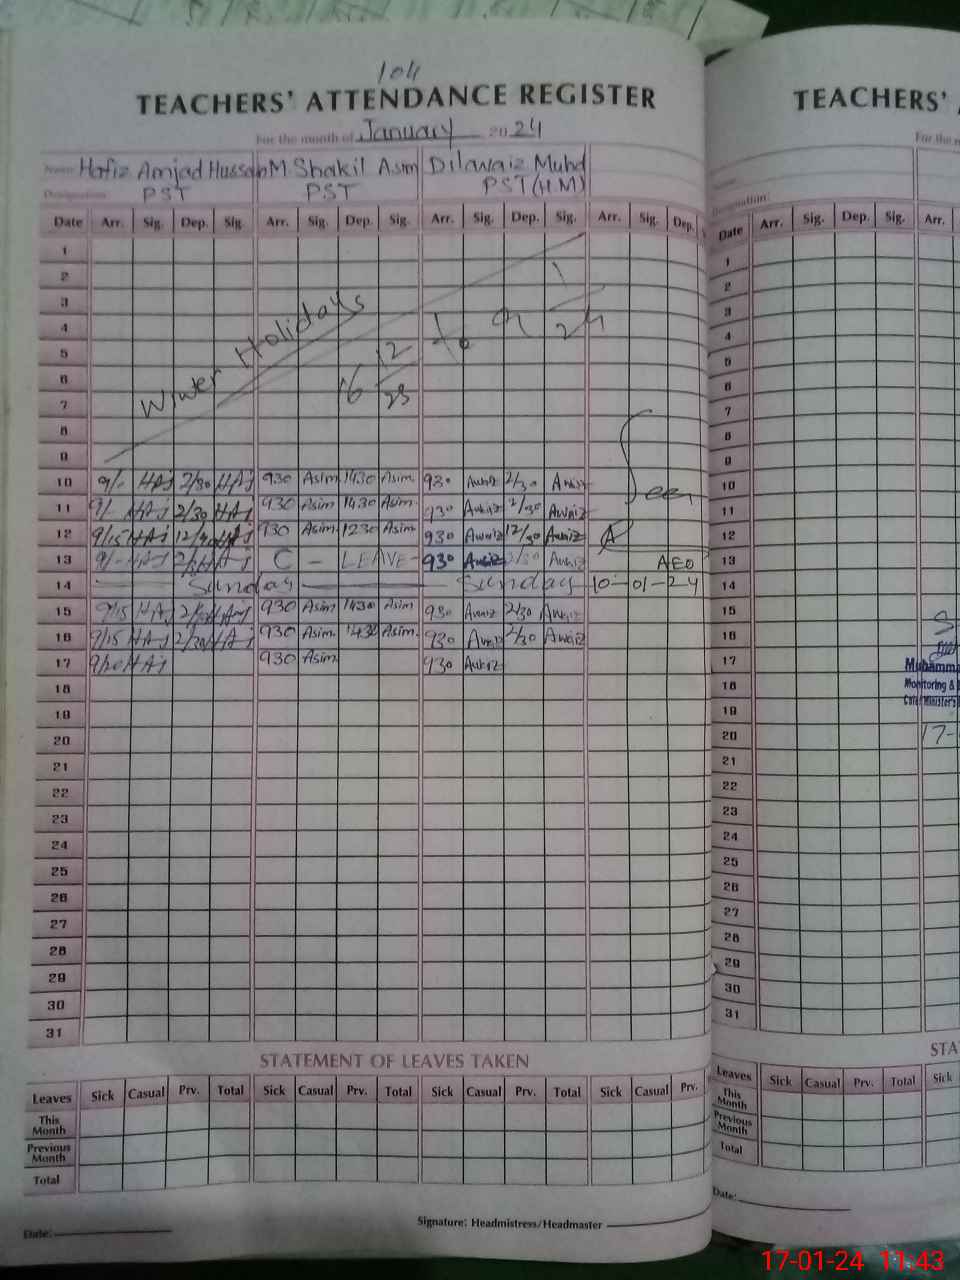 104
TEACHERS' ATTENDANCE REGISTER
For the month of January 2024
Name Hafiz Amjad Hussain M Shakil Asim Dilawaiz Muhd
Designation PST PST PST (H.M)
Date Arr. Sig. Dep. Sig. Arr. Sig. Dep. Sig. Arr. Sig. Dep. Sig. Arr. Sig. Dep.
1
2
3
4
5
6
7
8
9
Winter Holidays 16 12/23 to 9 1/24
10 9/- HAj 2/30 HAj 930 Asim 1430 Asim 930 Awaiz 2/30 Awaiz
Seen
11 9/- HAj 2/30 HAj 930 Asim 1430 Asim 930 Awaiz 2/30 Awaiz
12 9/15 HAj 12/30 HAj 930 Asim 1230 Asim 930 Awaiz 12/30 Awaiz
13 9/- HAj 2/30 HAj C - LEAVE - 930 Awaiz 2/30 Awaiz AEO
14 Sunday Sunday 10-01-24
15 9/15 HAj 2/30 HAj 930 Asim 1430 Asim 930 Awaiz 2/30 Awaiz
16 9/15 HAj 2/30 HAj 930 Asim 1430 Asim 930 Awaiz 2/30 Awaiz
17 9/20 HAj 930 Asim 930 Awaiz
18
19
20
21
22
23
24
25
26
27
28
29
30
31
STATEMENT OF LEAVES TAKEN
Leaves Sick Casual Prv. Total Sick Casual Prv. Total Sick Casual Prv. Total Sick Casual Prv.
This Month
Previous Month
Total
Date:
Signature: Headmistress/Headmaster
TEACHERS'
For the m
Name:
Designation:
Date Arr. Sig. Dep. Sig. Arr.
1
2
3
4
5
6
7
8
9
10
11
12
13
14
15
16
17 Muhamma
18 Monitoring &
19 Chief Minister's
20 17-
21
22
23
24
25
26
27
28
29
30
31
STA
Leaves Sick Casual Prv. Total Sick
This Month
Previous Month
Total
Date:
17-01-24 11:43